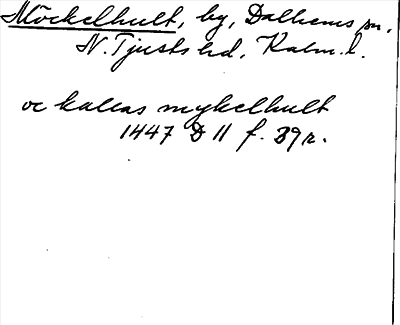 Möckelhult, by, Dalhems sn.
N. Tjusts hd, Kalm. l.
oc kallas mykelhult
1447 D 11 f. 39r.